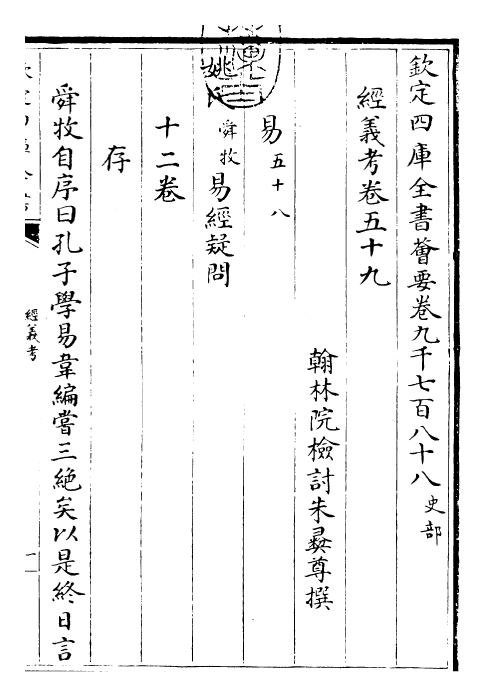 欽定四庫全書薈要卷九千七百八十八 史部
經義考卷五十九
翰林院檢討朱彝尊撰
易 五十八
姚氏 舜牧 易經疑問
十二卷
存
舜牧自序曰孔子學易韋編嘗三絶矣以是終日言
經義考
一